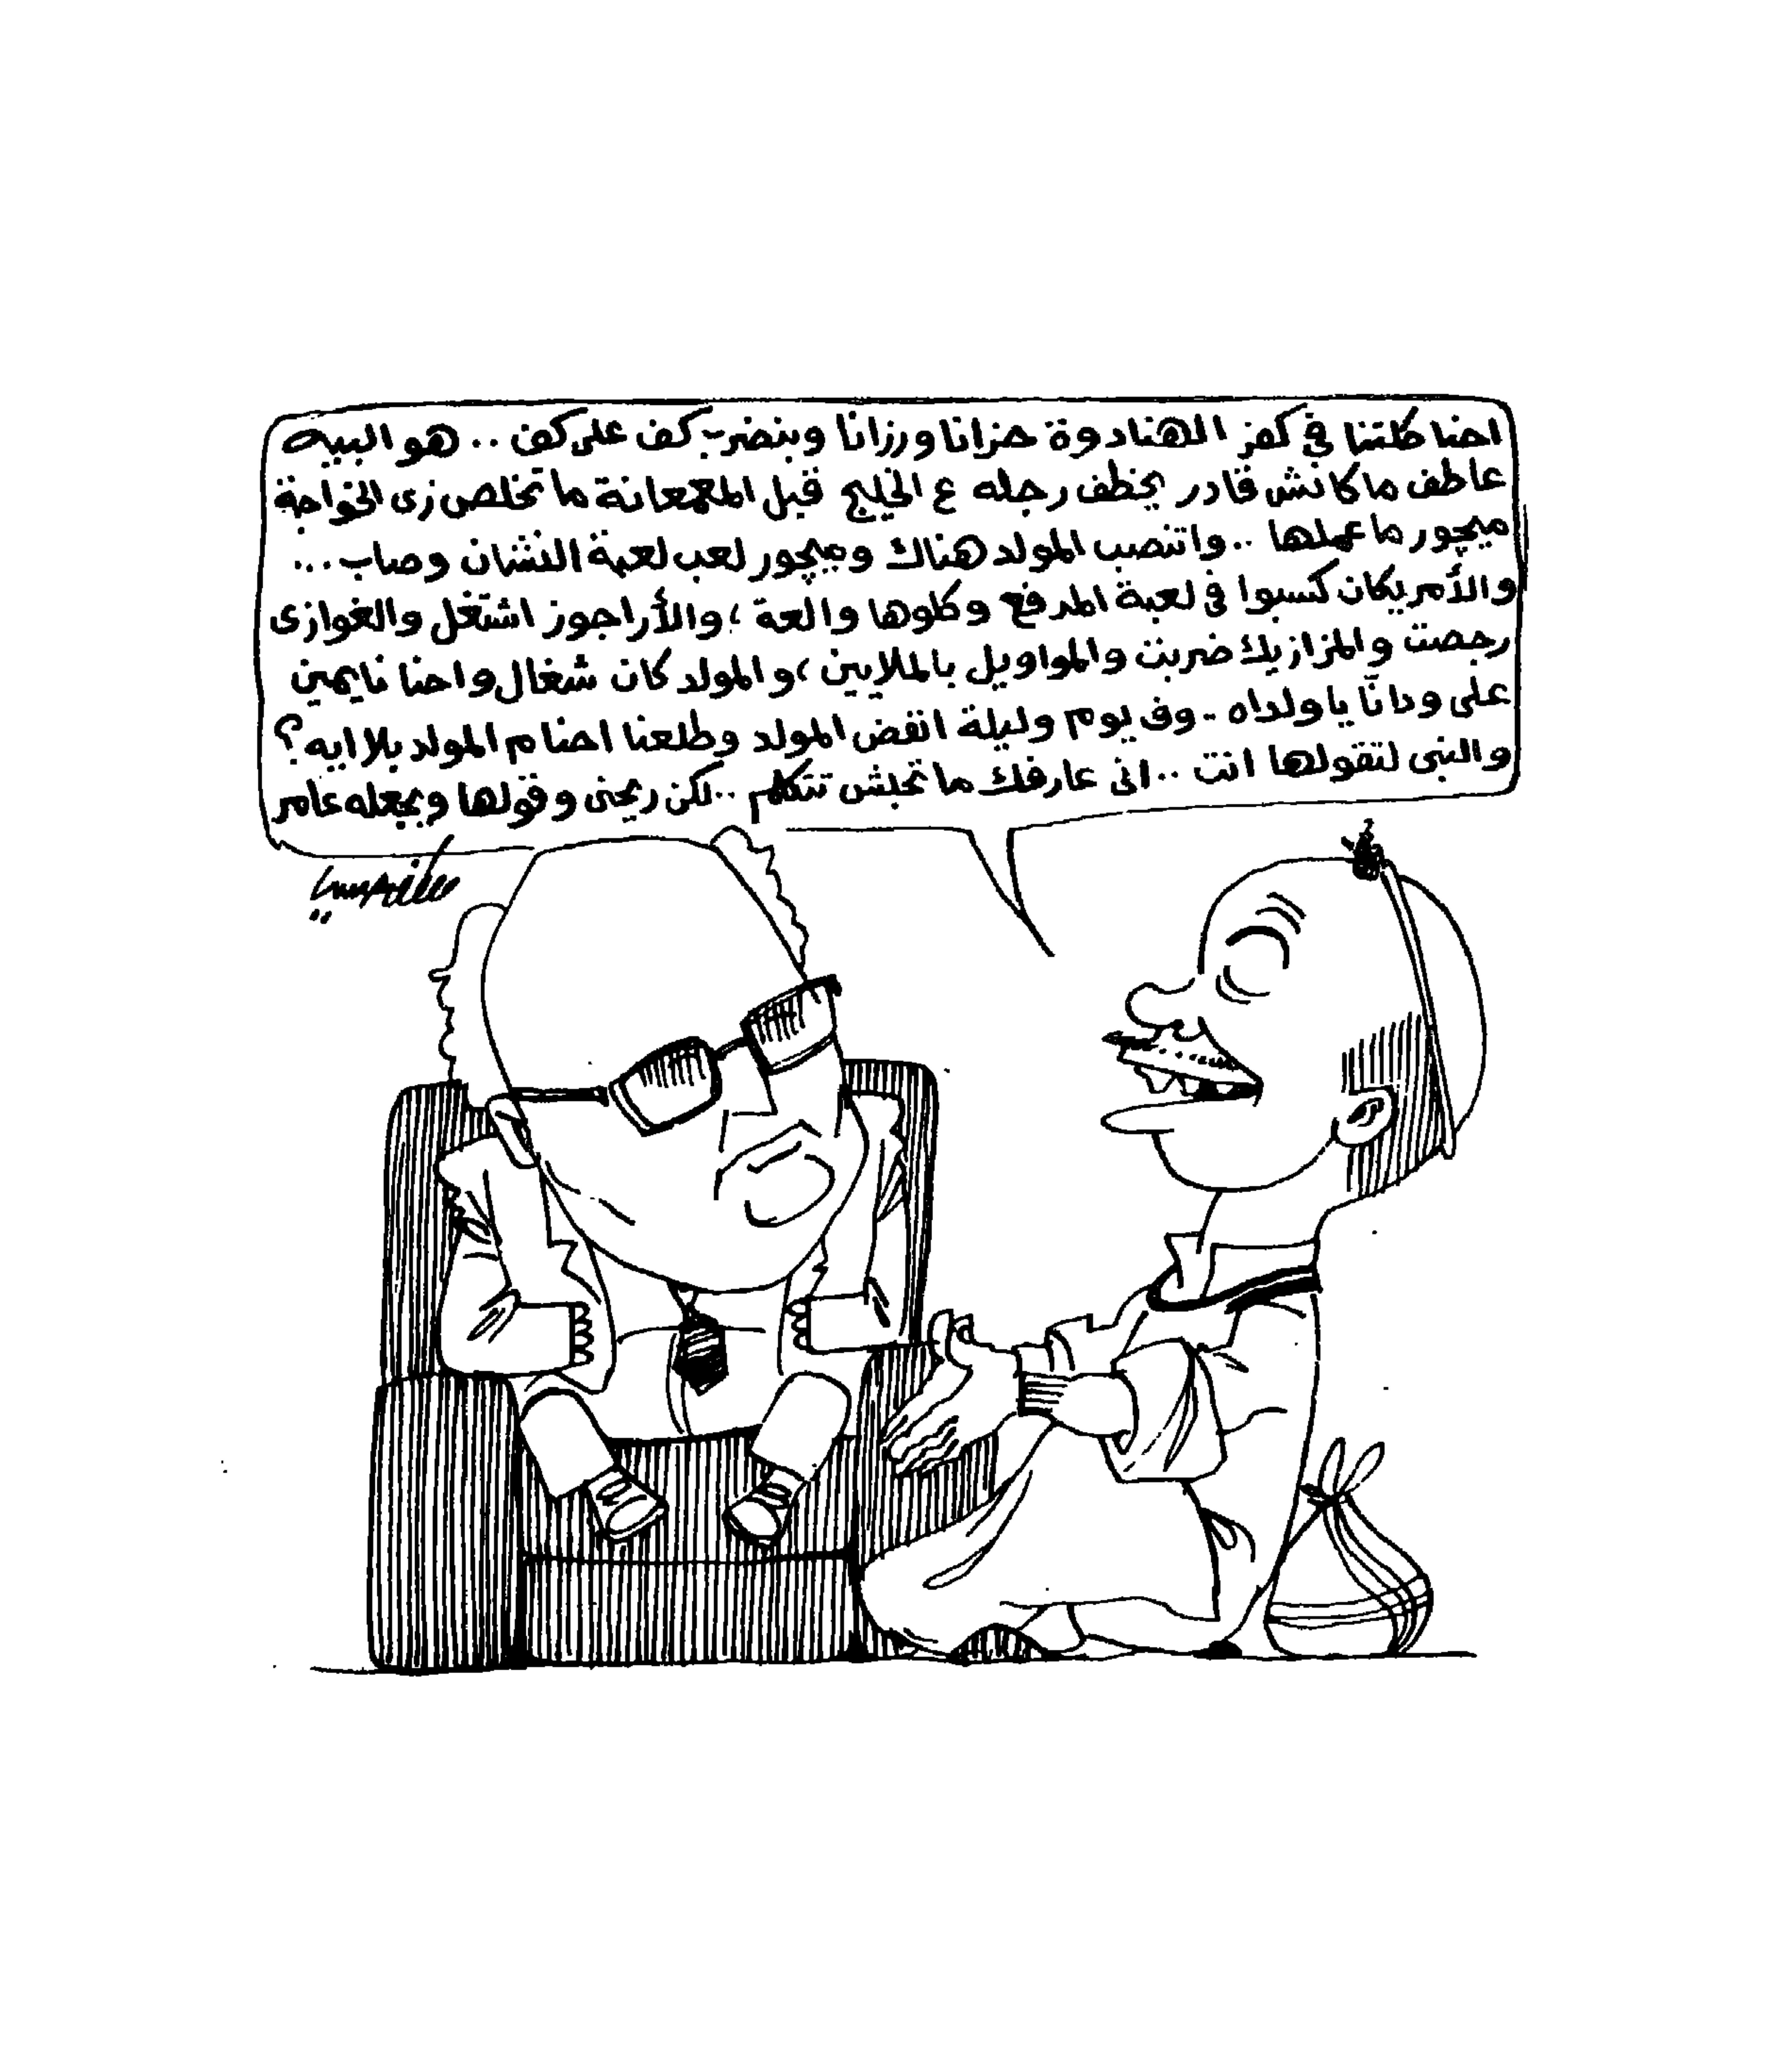 احنا كلتنا في كفر الهنادوة حزانا ورزانا وبنضرب كف على كف .. هو البيه
عاطف ما كانش قادر يخطف رجله ع الخليج قبل المعمعانة ما تخلص زى الخواجة
ميچور ما عملها .. واتنصب المولد هناك وميچور لعب لعبة النشان وصاب ...
والأمريكان كسبوا في لعبة المدفع وكلوها والعة ، والأراجوز اشتغل والغوازى
رجصت والمزازيك ضربت والمواويل بالملايين ، والمولد كان شغال واحنا نايمين
على ودانّا ياولداه .. وف يوم وليلة انفض المولد وطلعنا احنا م المولد بلا ايه ؟
والنبى لتقولها انت .. انى عارفك ما تحبش تتكلم .. لكن ريحنى وقولها ويجعله عامر